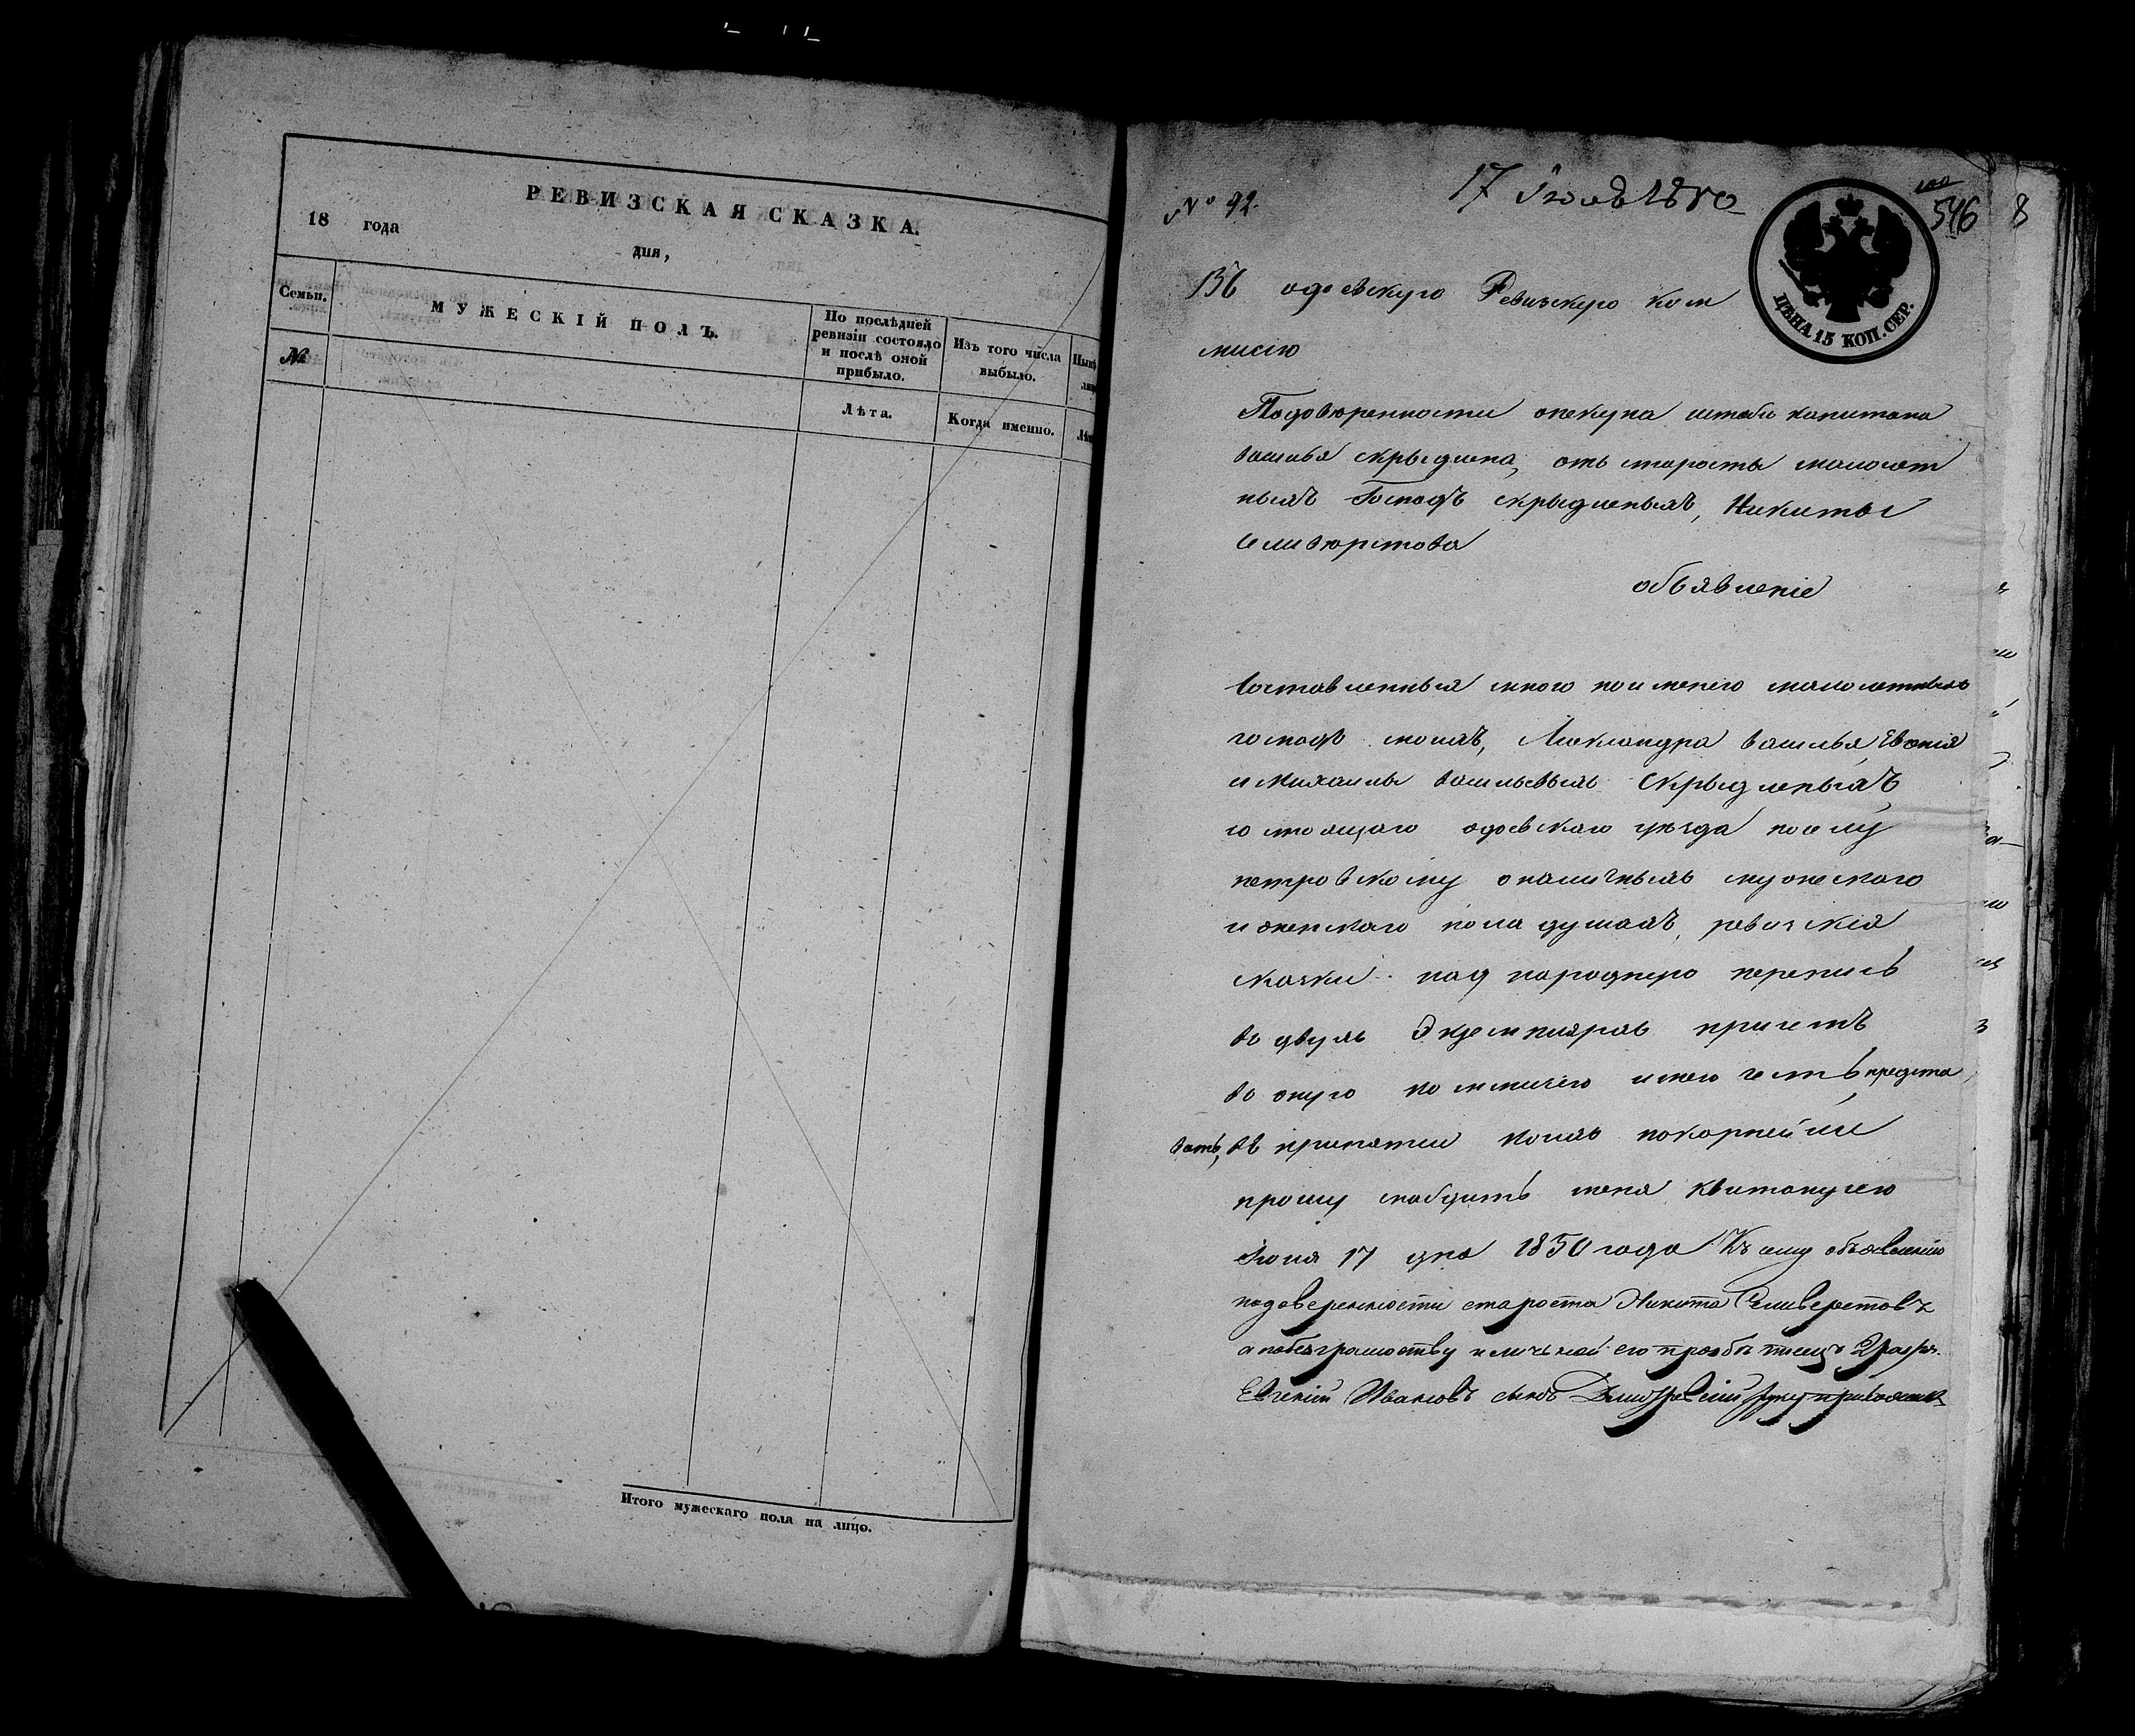 РЕВИЗСКАЯ СКАЗКА.
18 года
дня,
Семьи.
МУЖЕСКІЙ ПОЛЪ.
По послѣдней ревизіи состояло и послѣ оной прибыло.
Изъ того числа выбыло.
№
Лѣта.
Когда именно.
Итого мужескаго пола на лицо.
№ 92.
546
8
ЦѢНА 15 КОП. СЕР.
одоевскую Ревизскую ком
мисію
Подовюренности опекуна штабъ капитана
василья скрыдлева, отъ старосты малолет
ныхъ Господъ скрыдлевыхъ, Никиты
селивюрстова
объявленіе
Составленныя мною поименію малолетныхъ
господъ моихъ, Александра василья, Евгенія
и Михаилы васильевыхъ Скрыдлевыхъ
состоящаго одоевскаго уѣзда поселу
петровскому оналичныхъ мужескаго
и женскаго пола душахъ, ревизскія
сказки над народную перепись
въ двухъ Экземплярахъ присемъ
въ оную коммисію имею честь предста
вить, въ принятіи коихъ покорнейши
прошу снабдить меня квитанціею
Іюня 17 дня 1850 года Къ сему объявленію
подоверенности староста Никита Селиверстовъ
а побезграмотству и личной его прозбѣ писецъ 2 разря.
Евгеній Ивановъ сынъ руку приложилъ